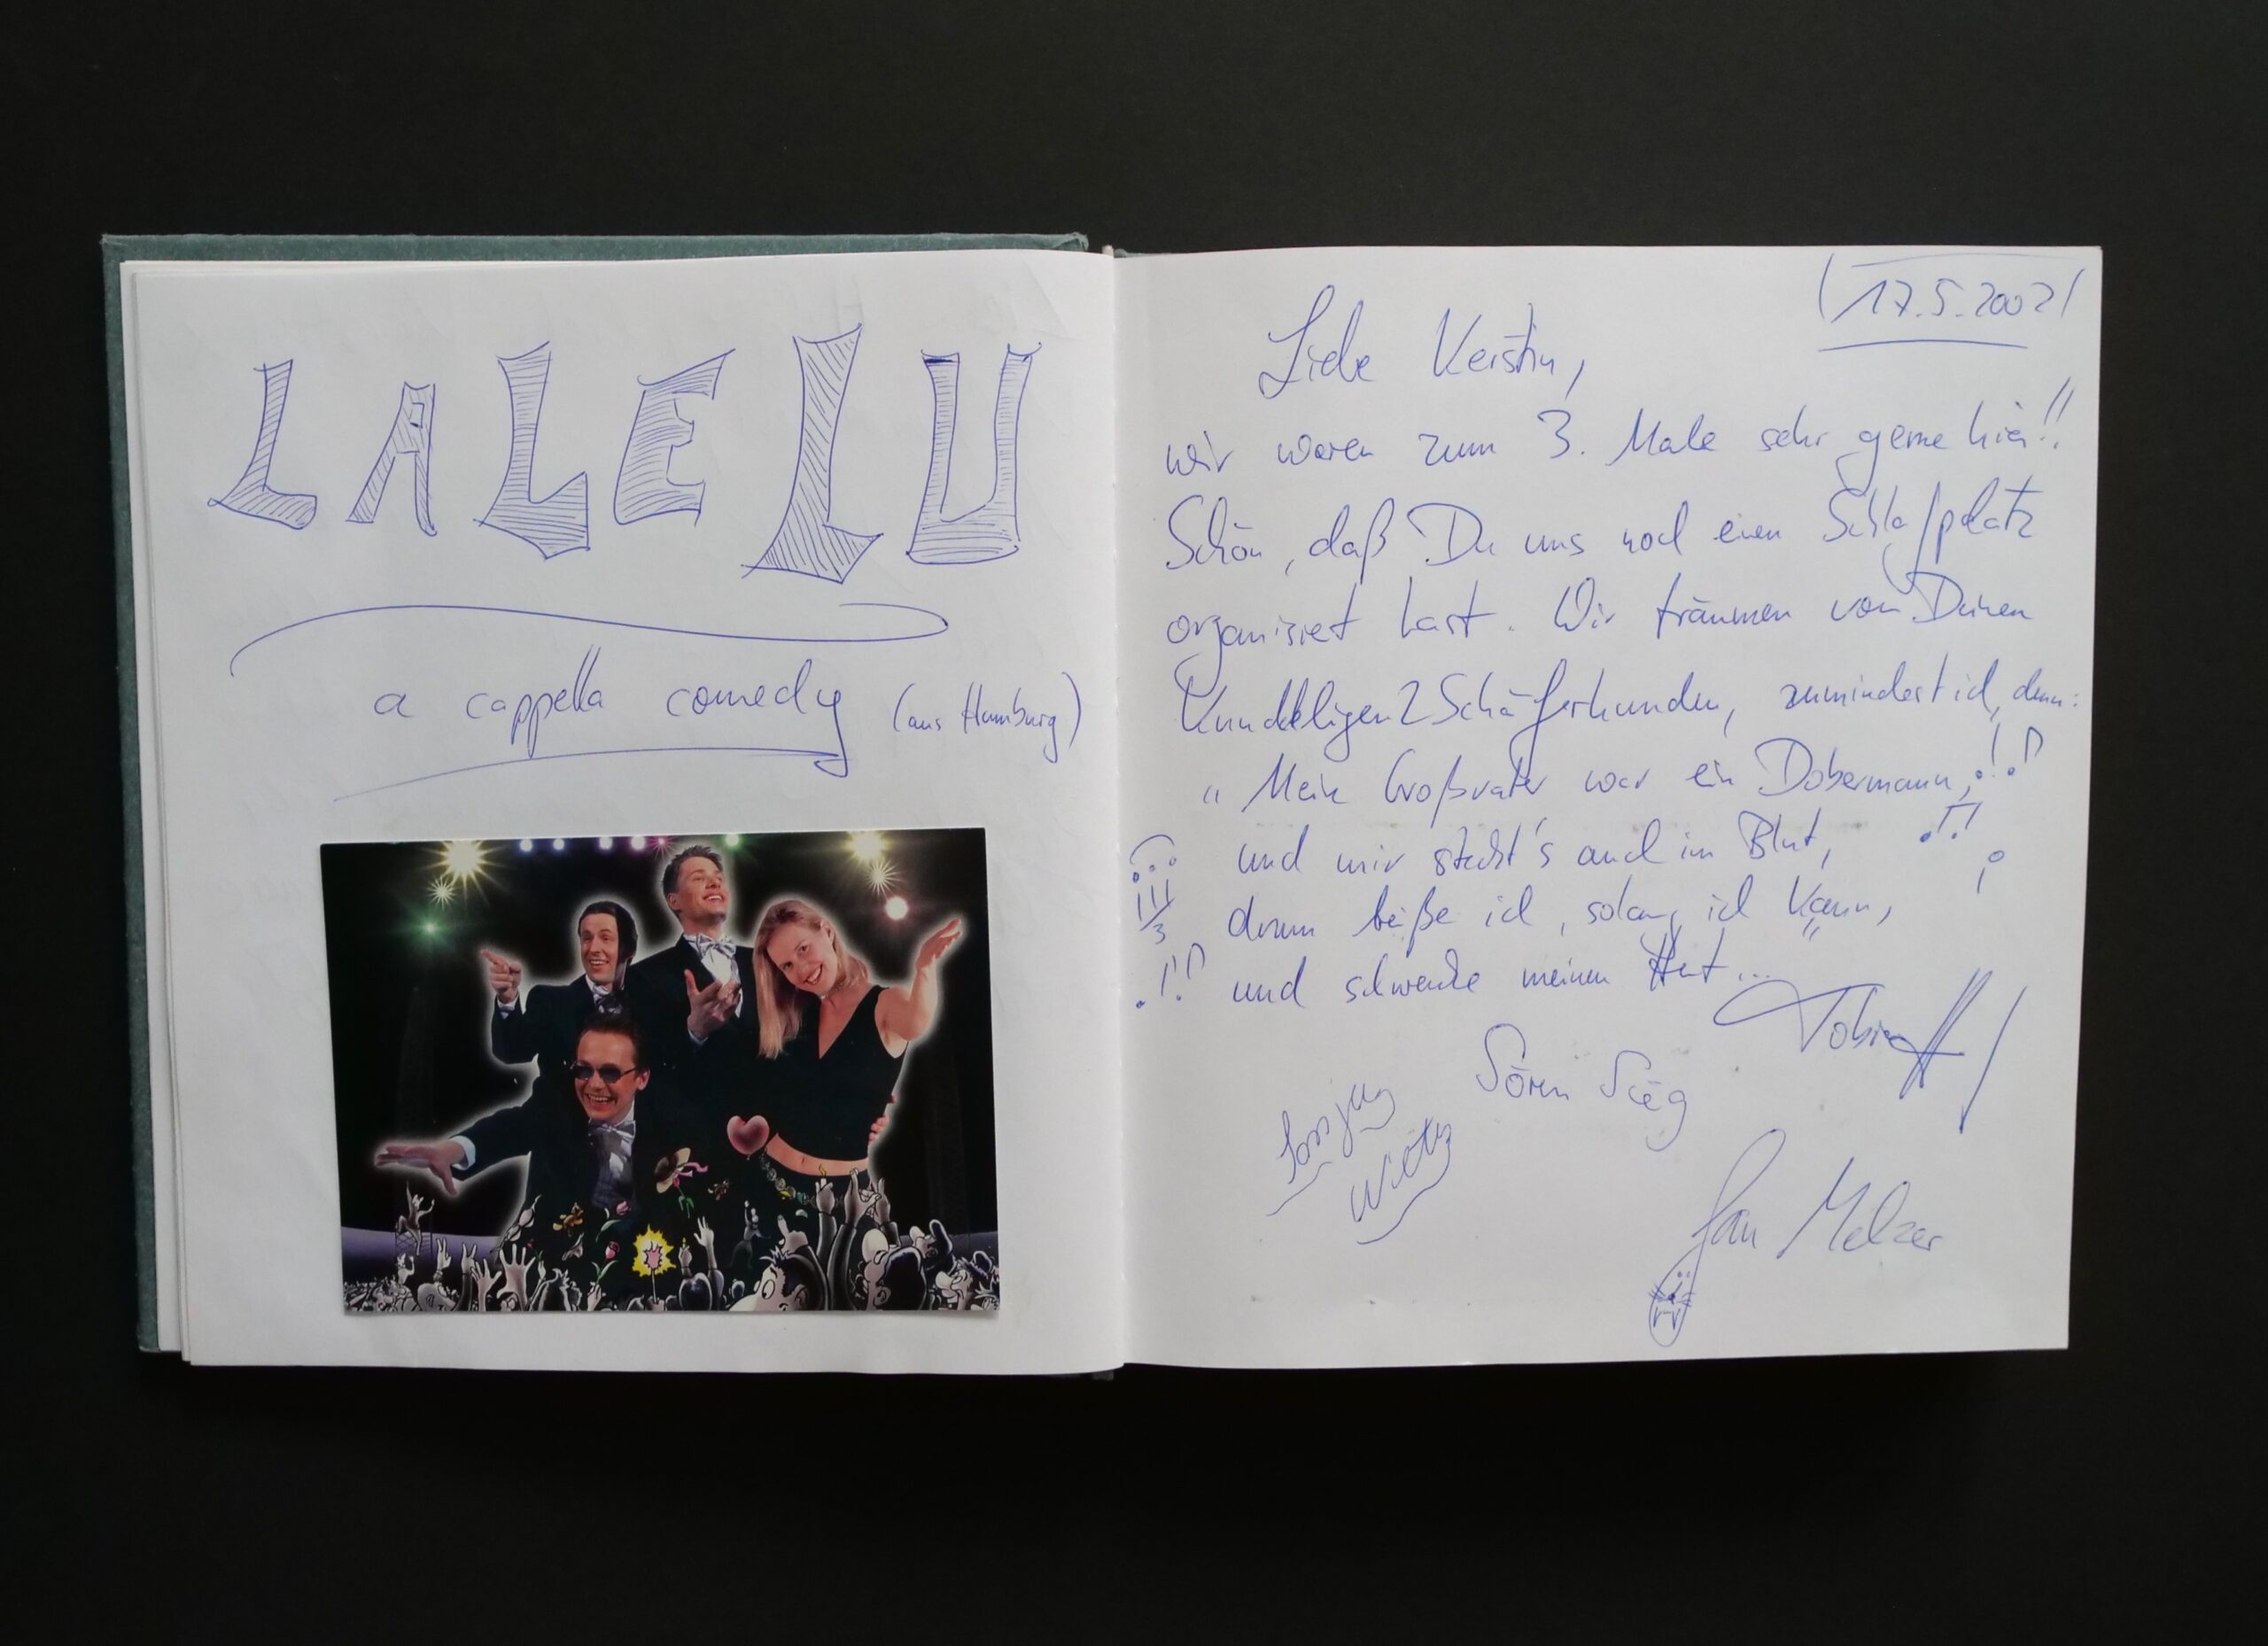 LALELU
a cappella comedy (aus Hamburg)
17.5.2002
Liebe Kerstin,
wir waren zum 3. Male sehr gerne hier!!
Schön, daß Du uns noch einen Schlafplatz
organisiert hast. Wir träumen von Deinen
knuddeligen 2 Schäferhunden, zumindest ich, denn:
"Mein Großvater war ein Dobermann,
und mir steckt's auch im Blut,
drum beiße ich, solang ich kann,
und schwenke meinen Hut...
Tobias
Sören Sieg
Jan Melzer